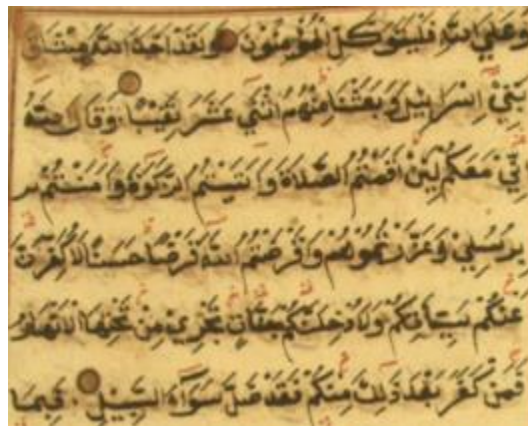 وَعَلَى اللَّهِ فَلْيَتَوَكَّلِ الْمُؤْمِنُونَ وَلَقَدْ أَخَذَ اللَّهُ مِيثَاقَ
بَنِي إِسْرَائِيلَ وَبَعَثْنَا مِنْهُمُ اثْنَيْ عَشَرَ نَقِيبًا وَقَالَ اللَّهُ
إِنِّي مَعَكُمْ لَئِنْ أَقَمْتُمُ الصَّلَاةَ وَآتَيْتُمُ الزَّكَوٰةَ وَآمَنْتُمْ
بِرُسُلِي وَعَزَّرْتُمُوهُمْ وَقَرَضْتُمُ اللَّهَ قَرْضًا حَسَنًا لَأُكَفِّرَنَّ
عَنْكُمْ سَيِّئَاتِكُمْ وَلَأُدْخِلَنَّكُمْ جَنَّاتٍ تَجْرِي مِنْ تَحْتِهَا الْأَنْهَارُ
فَمَنْ كَفَرَ بَعْدَ ذَٰلِكَ مِنْكُمْ فَقَدْ ضَلَّ سَوَاءَ السَّبِيلِ فَبِمَا